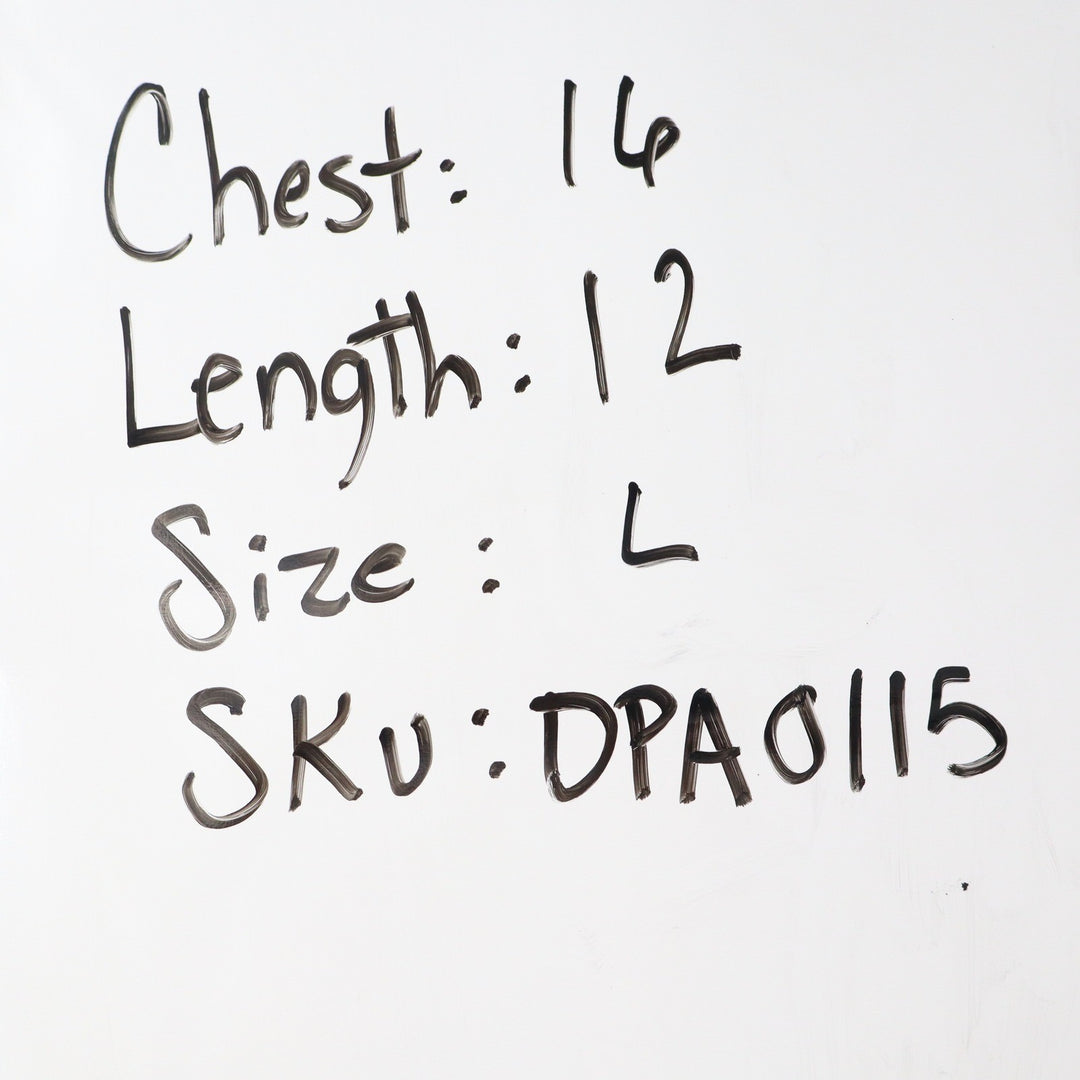 Chest: 16
Length: 12
Size: L
SKU: DPA0115